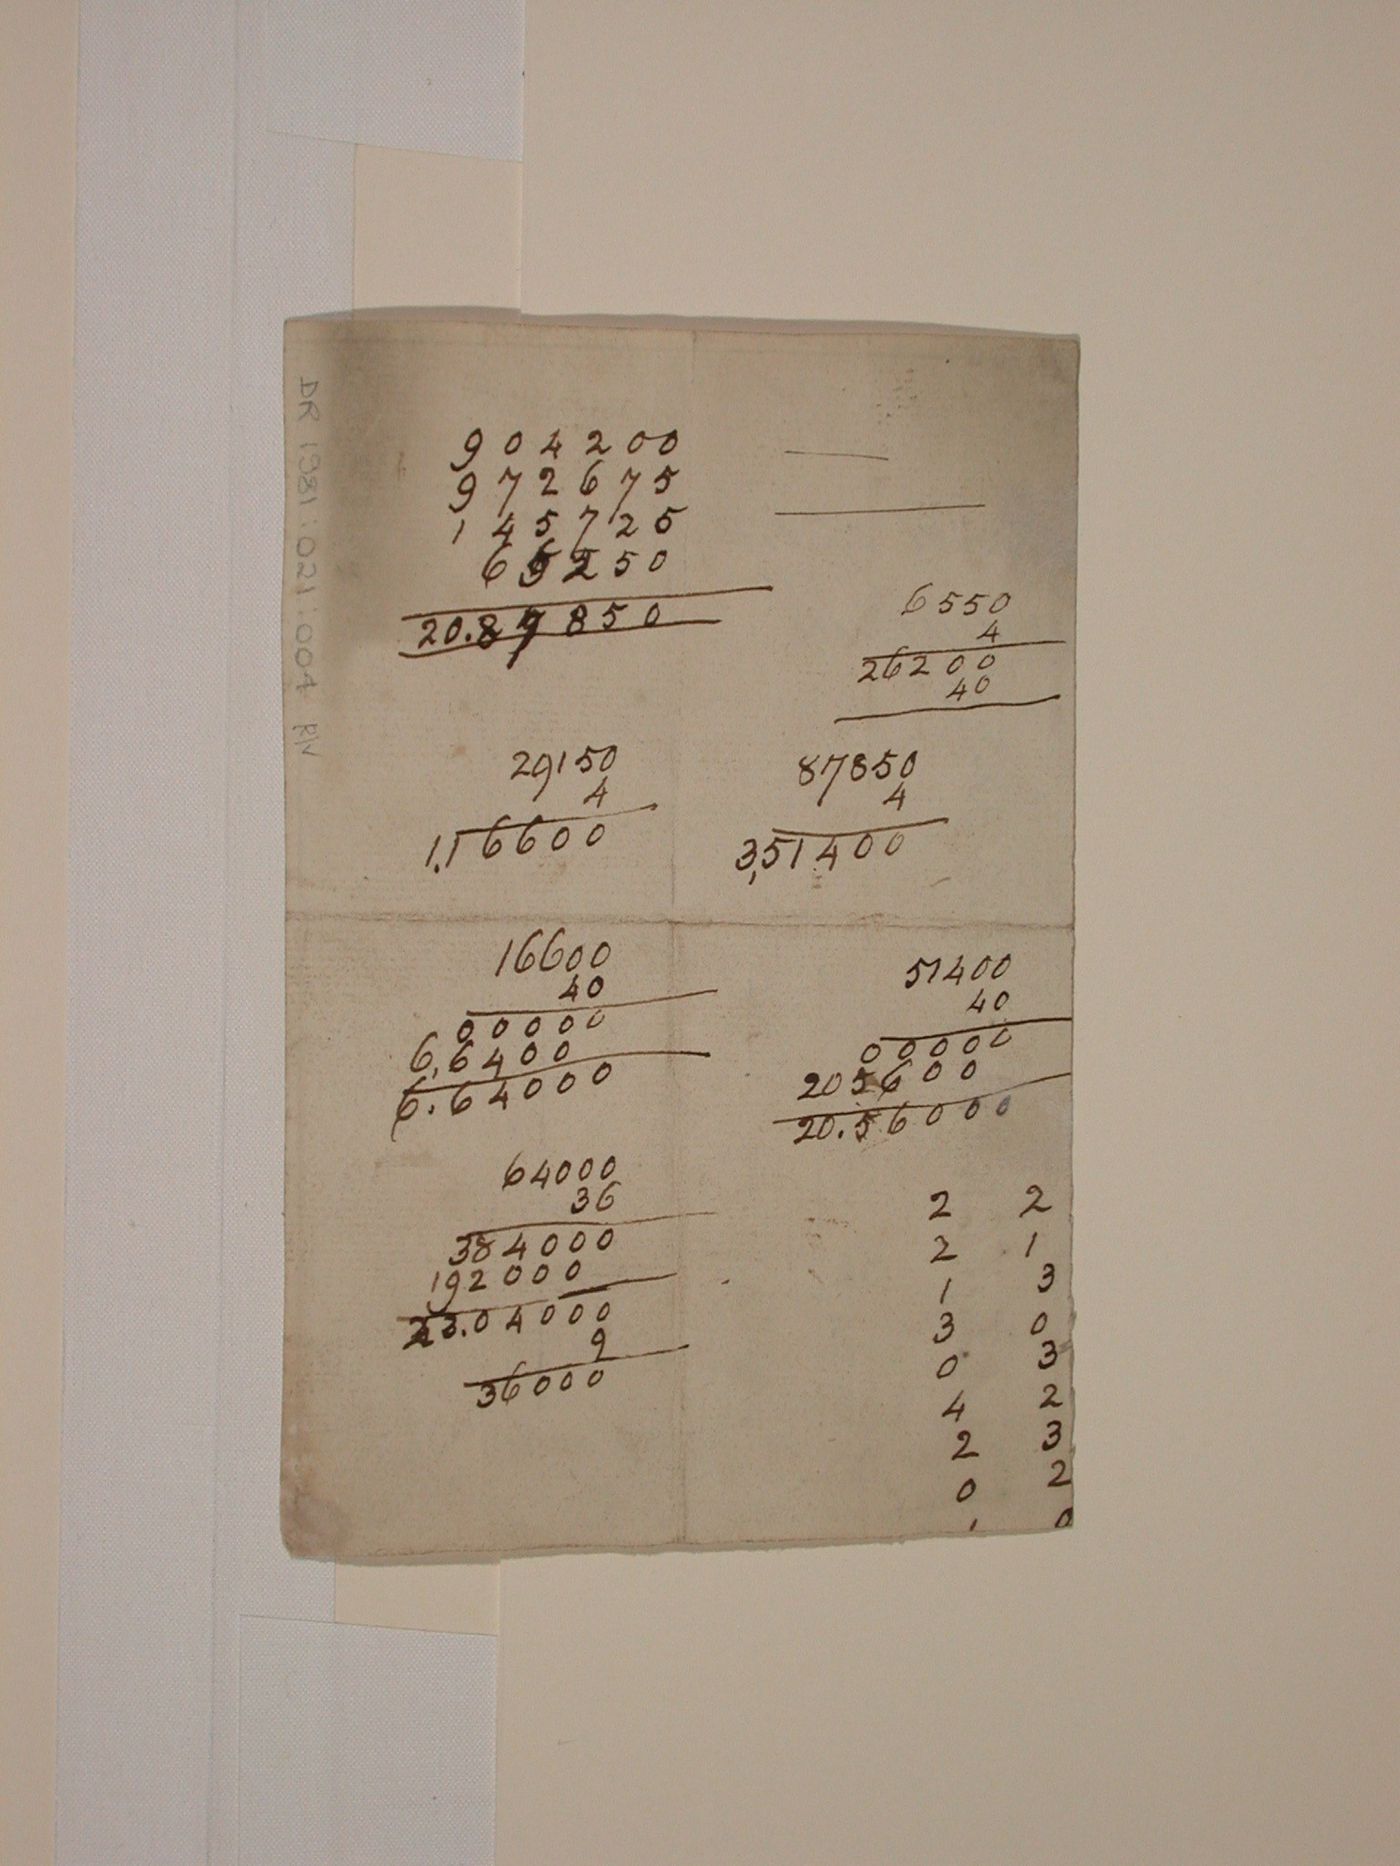 DR 1981:021:004 R/V
904200
972675
145725
65250
20.87850
6550
4
26200
40
29150
4
1,16600
87850
4
3,51400
16600
40
00000
6,6400
6.64000
51400
40
00000
205600
20.56000
64000
36
384000
192000
23.04000
9
36000
2 2
2 1
1 3
3 0
0 3
4 2
2 3
0 2
0